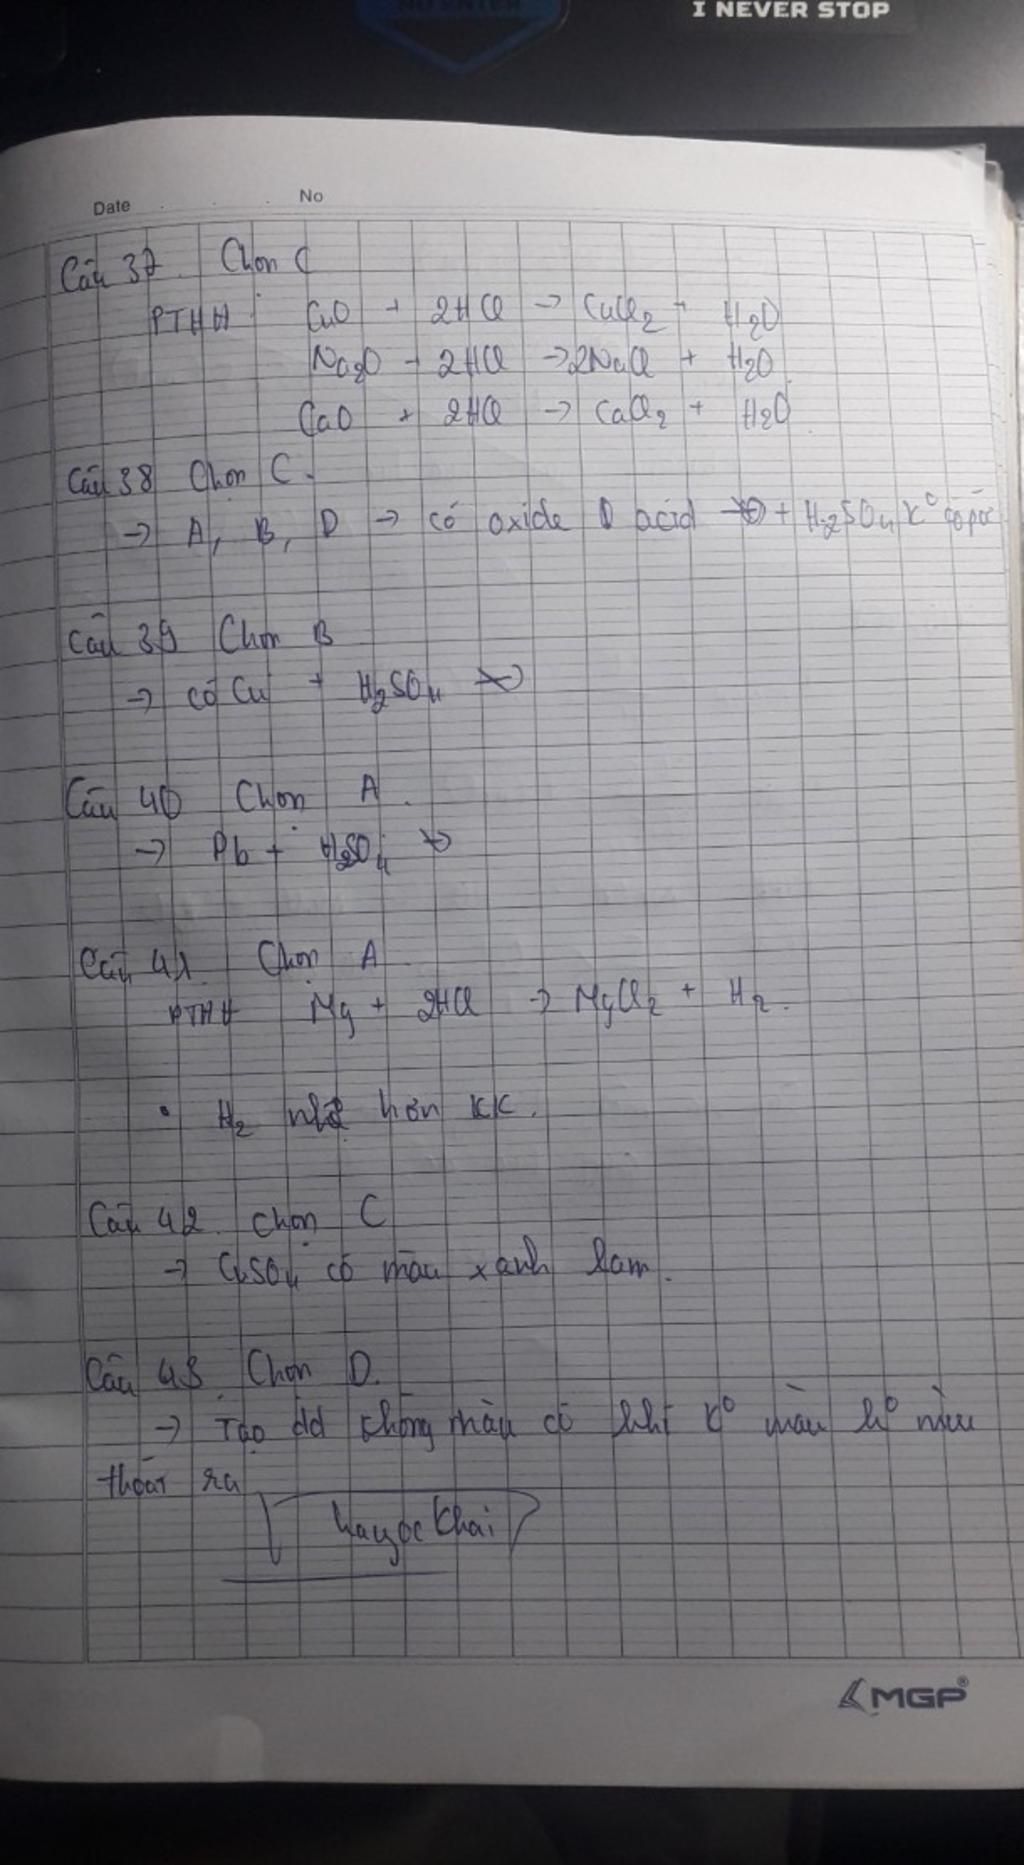 I NEVER STOP
Date No
Câu 37. Chọn C
PTHH: CuO + 2HCl → CuCl₂ + H₂O
Na₂O + 2HCl → 2NaCl + H₂O
CaO + 2HCl → CaCl₂ + H₂O
Câu 38 Chọn C.
→ A, B, D → có oxide acid + H₂SO₄ K⁰ có pứ
Câu 39 Chọn B
→ có Cu + H₂SO₄ ↛
Câu 40 Chọn A.
→ Pb + H₂SO₄ ↛
Câu 41. Chọn A
PTHH Mg + 2HCl → MgCl₂ + H₂.
• H₂ nhẹ hơn KK.
Câu 42. Chọn C
→ CuSO₄ có màu xanh lam.
Câu 43. Chọn D.
→ Tạo dd không màu có khí K⁰ màu
thoát ra
MGP